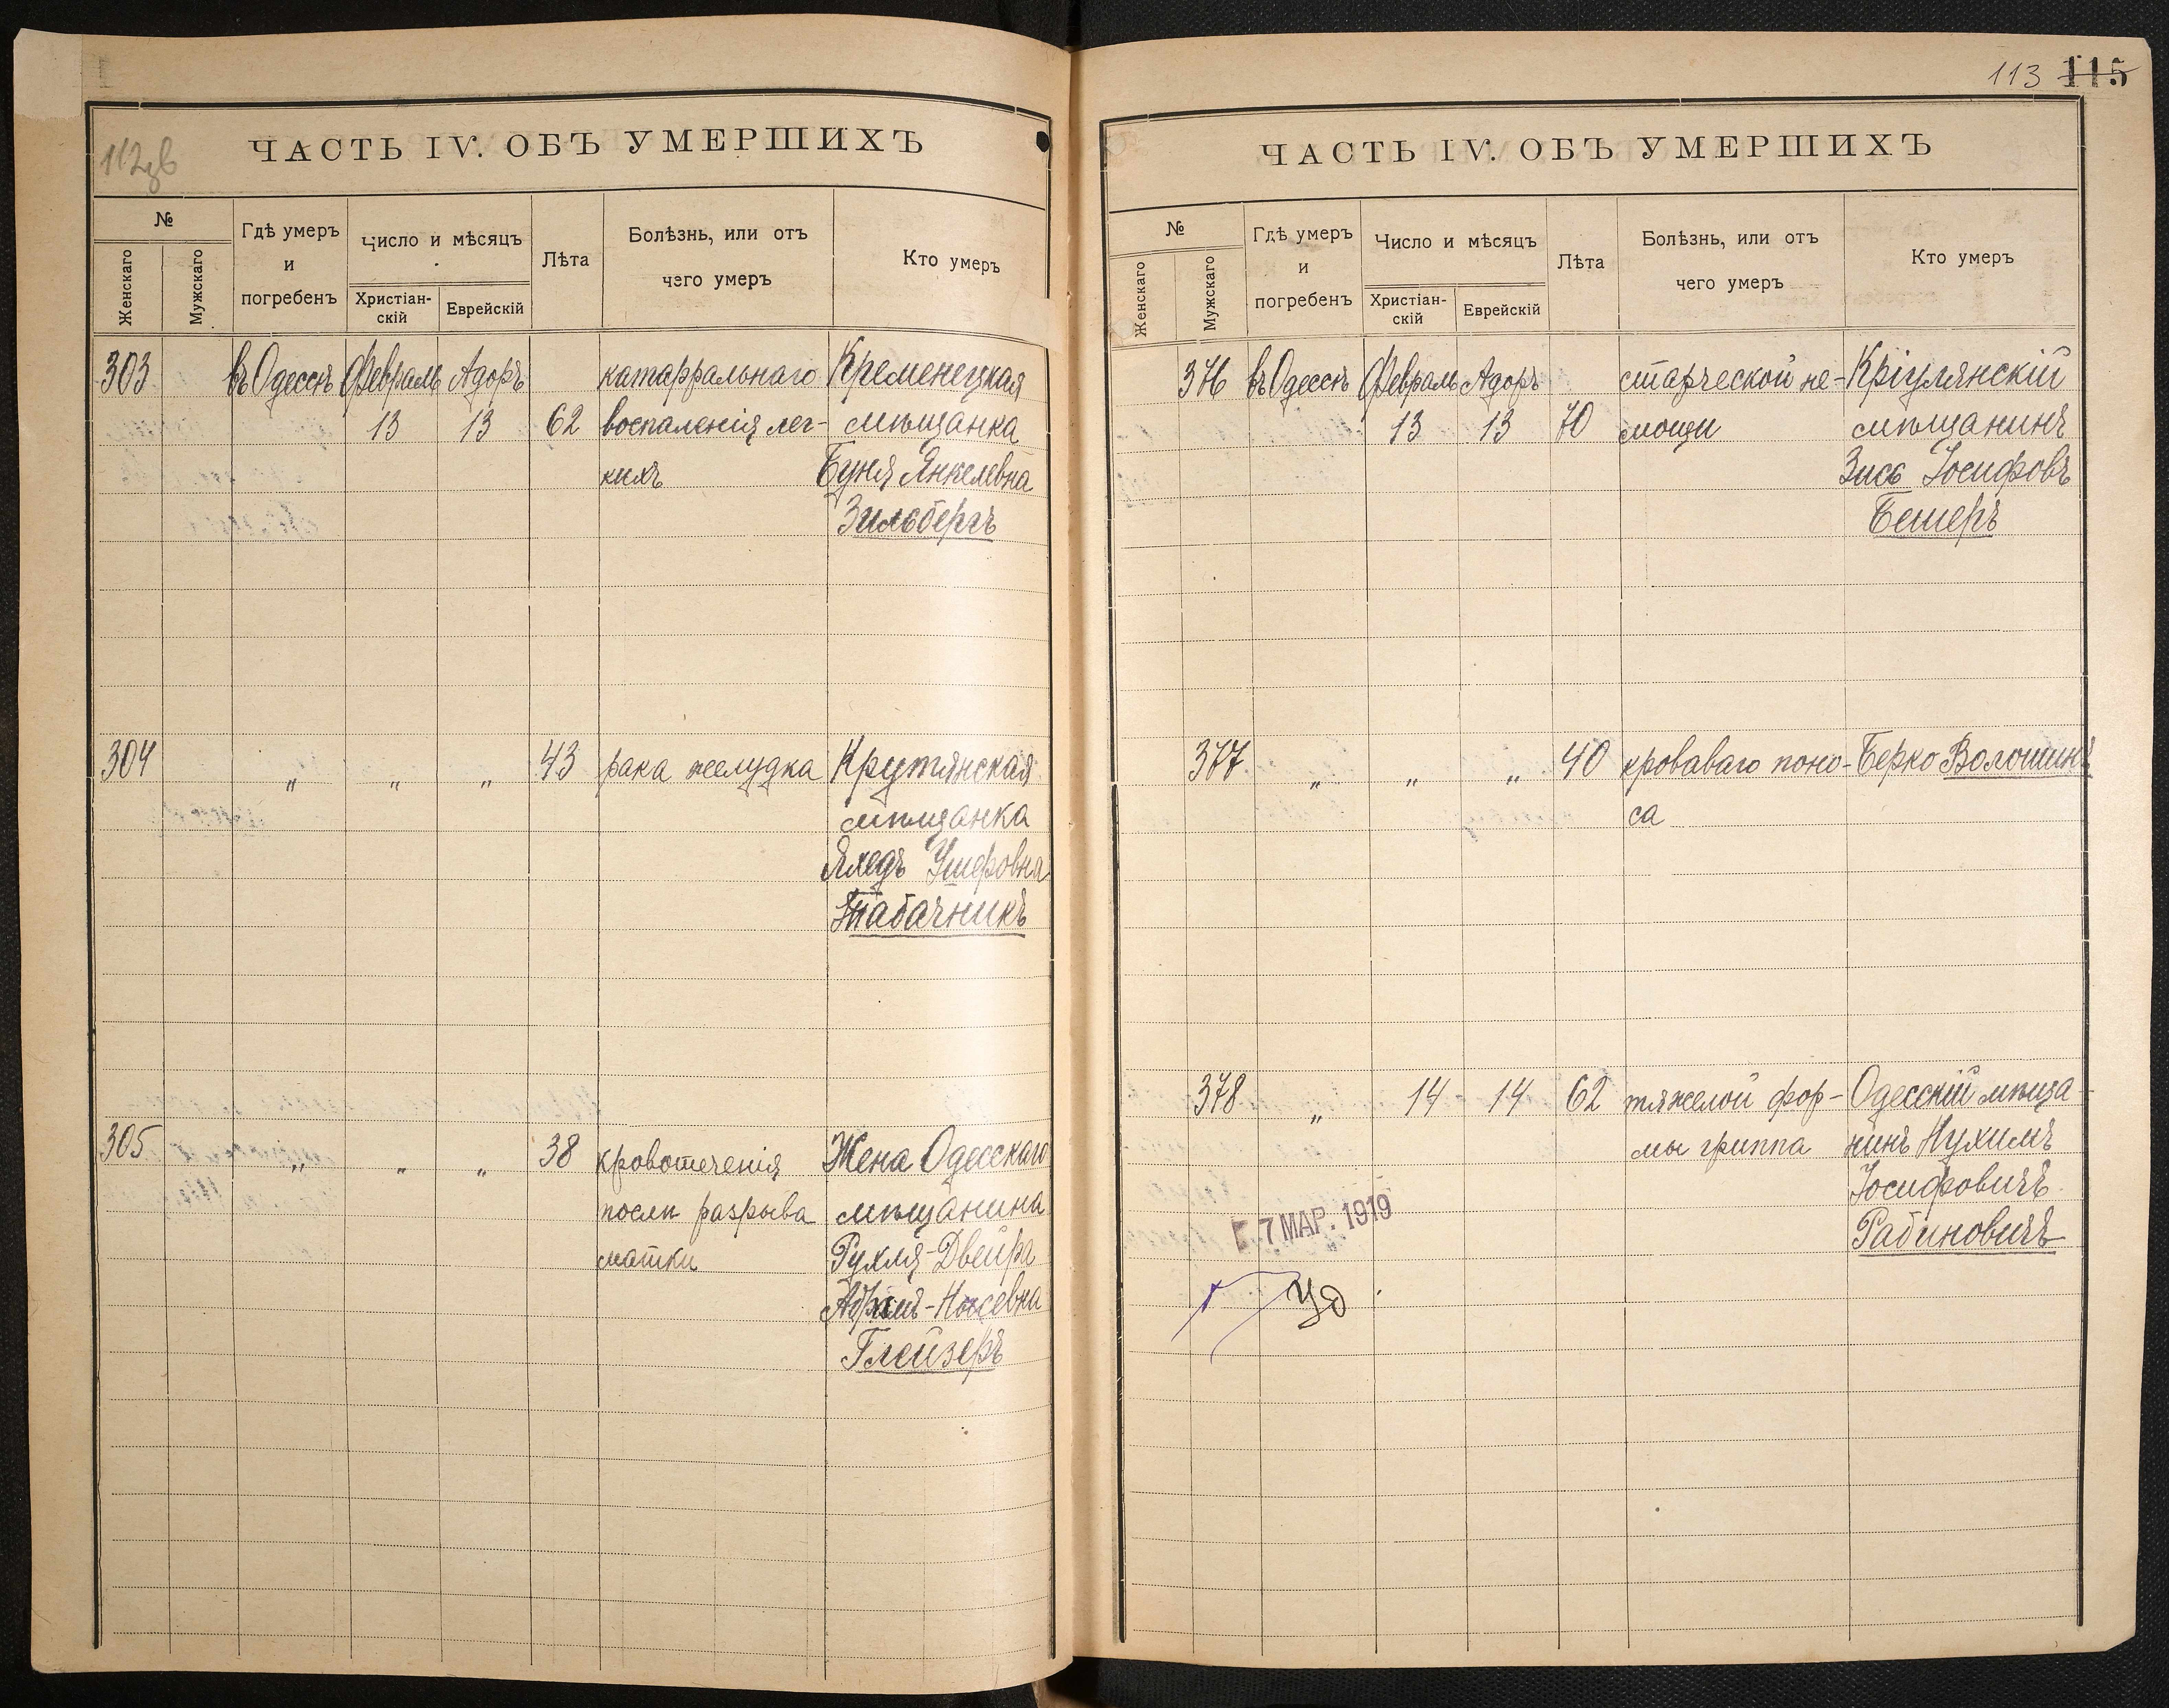 112зв
ЧАСТЬ IV. ОБЪ УМЕРШИХЪ
№
Женскаго
Мужскаго
Гдѣ умеръ
и
погребенъ
Число и мѣсяцъ
Христіан-
скій
Еврейскій
Лѣта
Болѣзнь, или отъ
чего умеръ
Кто умеръ
303 въ Одессѣ Февраль Адоръ катарральнаго Кременецкая
13 13 62 воспаленія лег- мѣщанка
кихъ Буня Янкелевна
Зильбергъ
304 „ „ „ 43 рака желудка Крутянская
мѣщанка
Яхедъ Ушеровна
Табачникъ
305 „ „ „ 38 кровотеченія Жена Одесскаго
послѣ разрыва мѣщанина
матки Рухля-Двейра
Абрамъ-Носевна
Глейзеръ
113 115
ЧАСТЬ IV. ОБЪ УМЕРШИХЪ
№
Женскаго
Мужскаго
Гдѣ умеръ
и
погребенъ
Число и мѣсяцъ
Христіан-
скій
Еврейскій
Лѣта
Болѣзнь, или отъ
чего умеръ
Кто умеръ
376 въ Одессѣ Февраль Адоръ старческой не- Кріулянскій
13 13 70 мощи мѣщанинъ
Зись Іосифовъ
Бешеръ
377 „ „ „ 40 кроваваго поно- Берко Волошинъ
са
378 „ 14 14 62 тяжелой фор- Одесскій мѣща-
мы гриппа нинъ Нухимъ
Іосифовичъ
Рабиновичъ
7 МАР. 1919